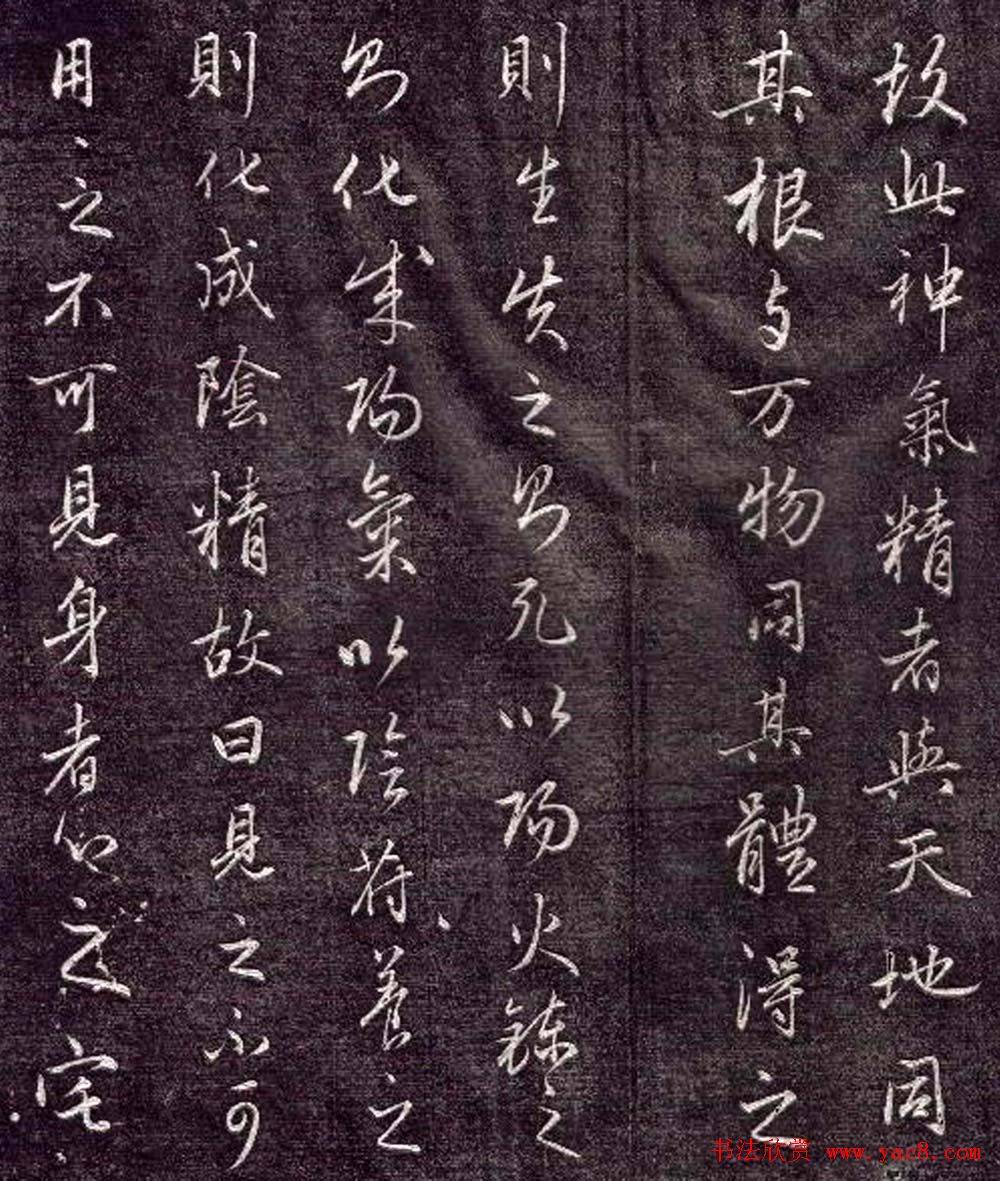 故此神氣精者與天地同
其根与万物同其體得之
則生失之則死以陽火鍊之
則化成陽氣以陰苻養之
則化成陰精故曰見之不可
用之不可見身者心之宅
书法欣赏 www.yac8.com